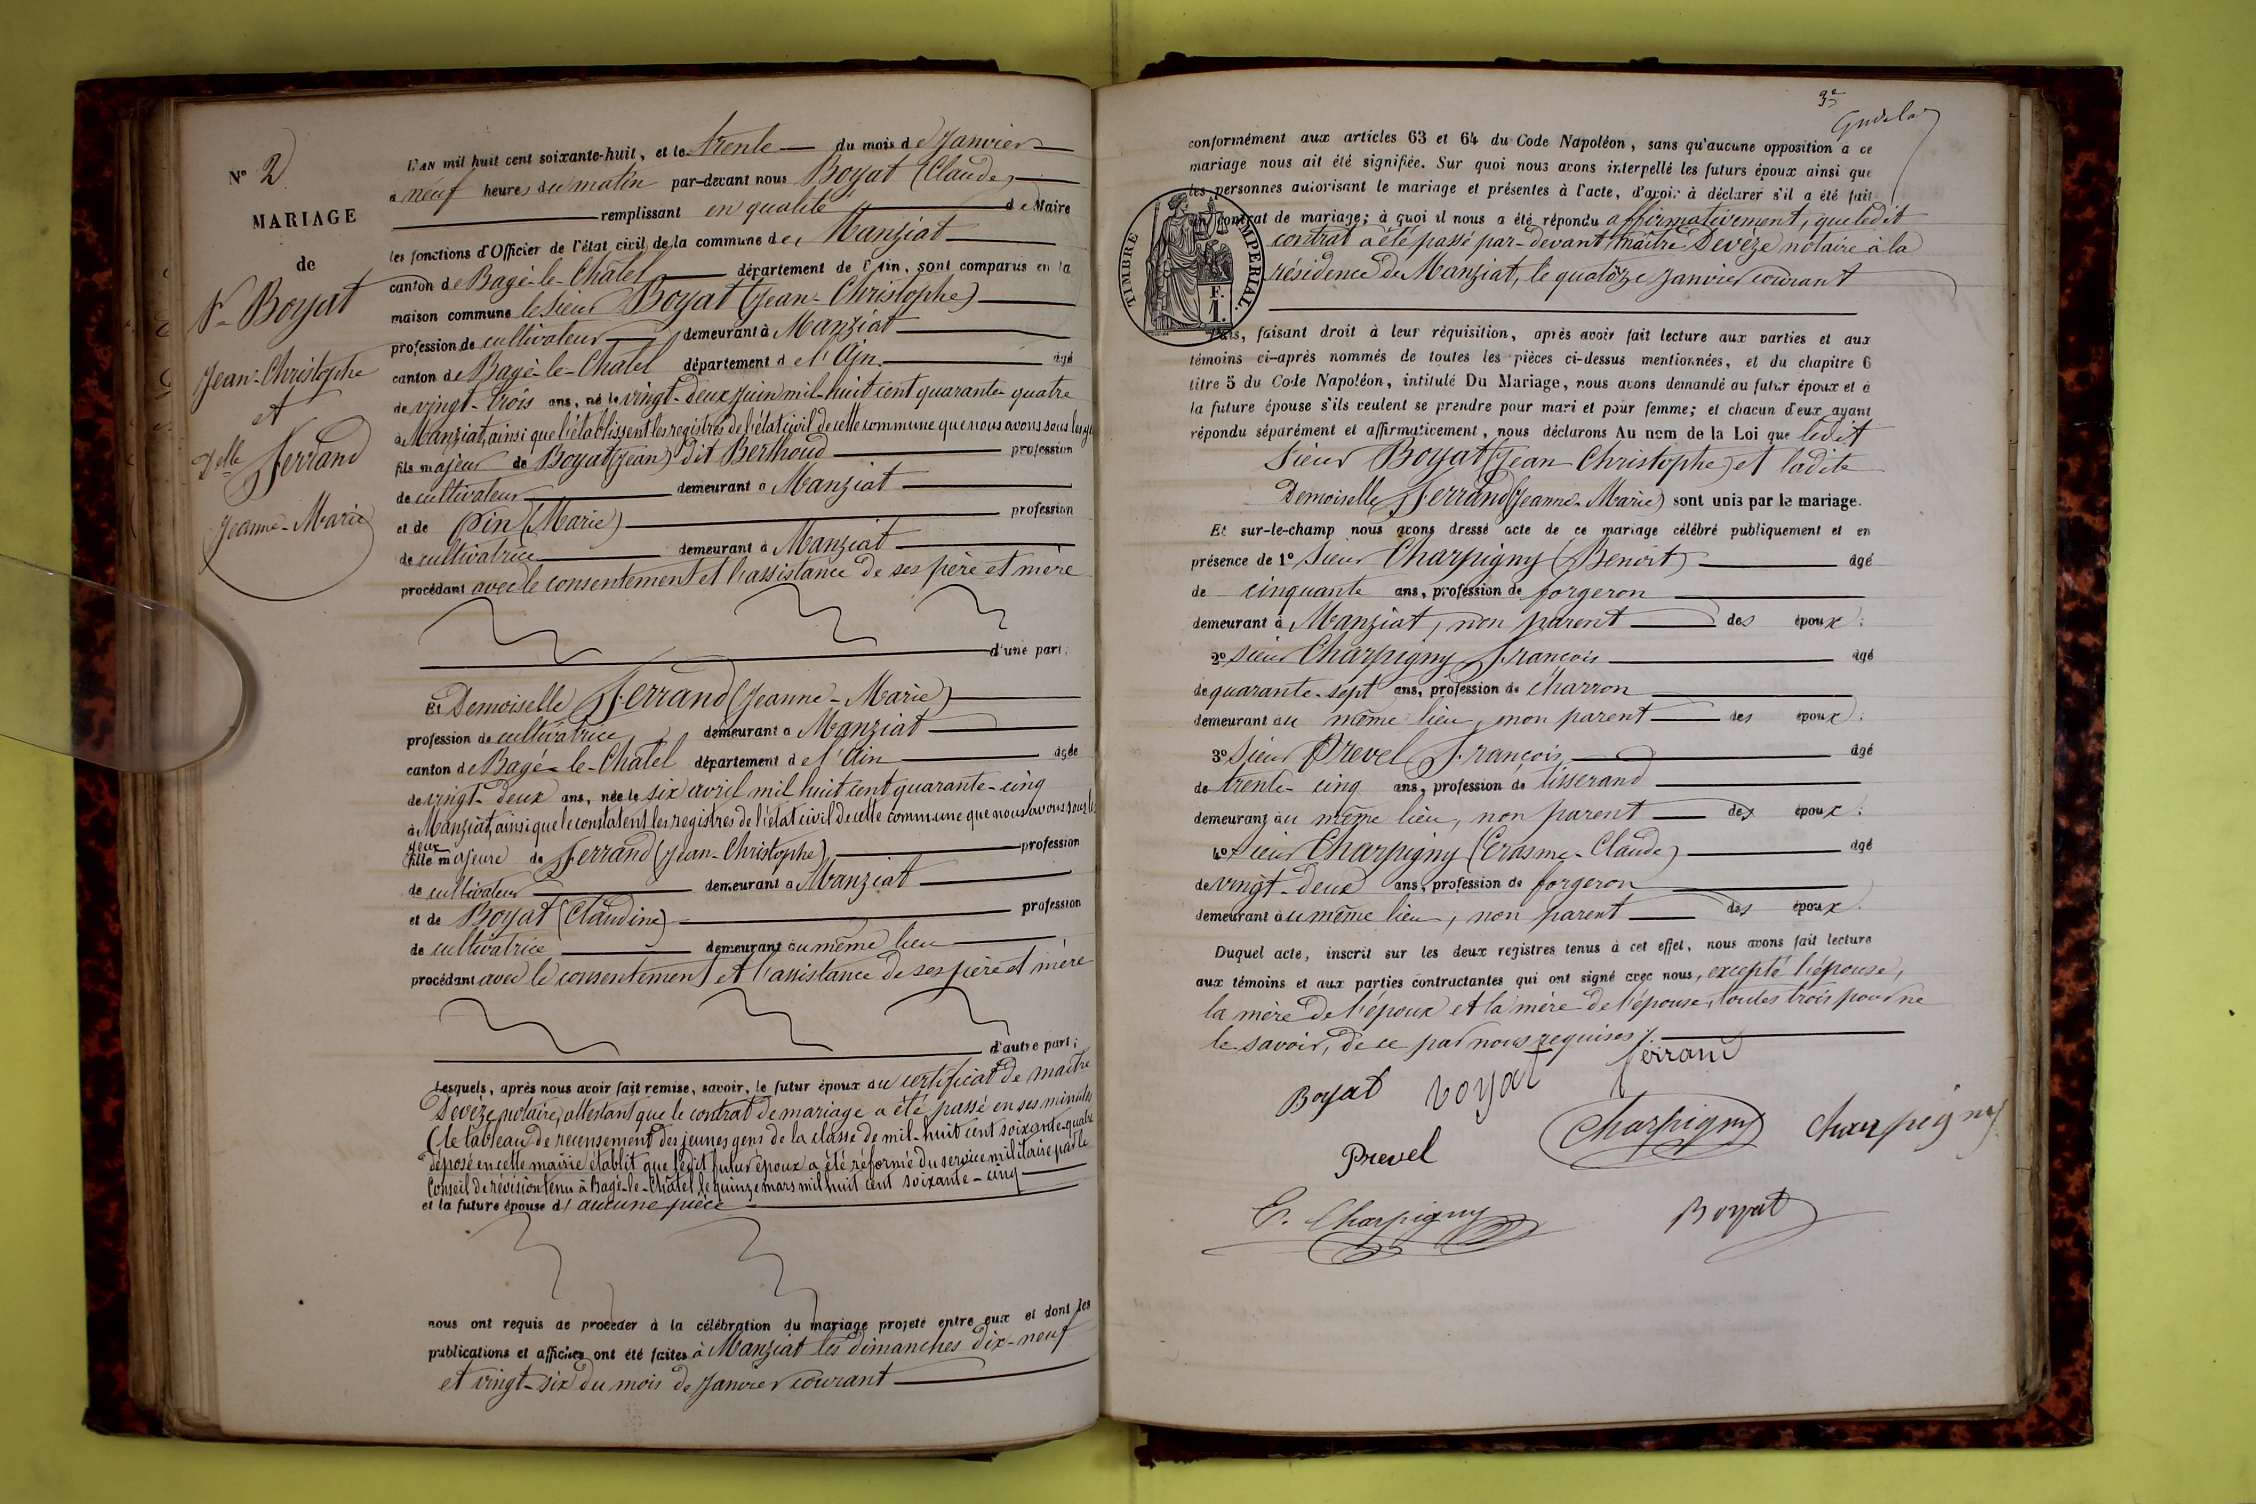 N° 2
MARIAGE
de
Sr Boyat
Jean-Christophe
et
Delle Ferrand
Jeanne-Marie
L'AN mil huit cent soixante-huit, et le trente du mois de Janvier
à neuf heures du matin par-devant nous Boyat (Claude)
remplissant en qualité de Maire
les fonctions d'Officier de l'état civil de la commune de Manziat
canton de Bagé-le-Châtel département de l'Ain, sont comparus en la
maison commune le sieur Boyat (Jean-Christophe)
profession de cultivateur demeurant à Manziat
canton de Bagé-le-Châtel département de l'Ain âgé
de vingt-trois ans, né le vingt-deux juin mil-huit cent quarante-quatre
à Manziat, ainsi que l'établissent les registres de l'état civil de cette commune que nous avons sous les
fils majeur de Boyat (Jean) dit Berthoud profession
de cultivateur demeurant à Manziat
et de Pin (Marie) profession
de cultivatrice demeurant à Manziat
procédant avec le consentement et l'assistance de ses père et mère
d'une part;
Et Demoiselle Ferrand (Jeanne-Marie)
profession de cultivatrice demeurant à Manziat
canton de Bagé-le-Châtel département de l'Ain âgée
de vingt-deux ans, née le six avril mil huit cent quarante-cinq
à Manziat, ainsi que le constatent les registres de l'état civil de cette commune que nous avons sous les
yeux
fille majeure de Ferrand (Jean-Christophe) profession
de cultivateur demeurant à Manziat
et de Boyat (Claudine) profession
de cultivatrice demeurant au même lieu
procédant avec le consentement et l'assistance de ses père et mère
d'autre part;
Lesquels, après nous avoir fait remise, savoir, le futur époux du certificat de maître
Devèze notaire, attestant que le contrat de mariage a été passé en ses minutes
(le tableau de recensement des jeunes gens de la classe de mil-huit cent soixante-quatre
déposé en cette mairie établit que ledit futur époux a été réformé du service militaire par le
Conseil de révision tenu à Bagé-le-Châtel le quinze mars mil huit cent soixante-cinq
et la future épouse d' aucune pièce
nous ont requis de procéder à la célébration du mariage projeté entre eux et dont les
publications et affiches ont été faites à Manziat les dimanches dix-neuf
et vingt-six du mois de Janvier courant
conformément aux articles 63 et 64 du Code Napoléon, sans qu'aucune opposition à ce
mariage nous ait été signifiée. Sur quoi nous avons interpellé les futurs époux ainsi que
les personnes autorisant le mariage et présentes à l'acte, d'avoir à déclarer s'il a été fait
contrat de mariage; à quoi il nous a été répondu affirmativement, que ledit
contrat a été passé par-devant maître Devèze notaire à la
résidence de Manziat, le quatorze Janvier courant
TIMBRE IMPERIAL.
F.
1.
Puis, faisant droit à leur réquisition, après avoir fait lecture aux parties et aux
témoins ci-après nommés de toutes les pièces ci-dessus mentionnées, et du chapitre 6
titre 5 du Code Napoléon, intitulé Du Mariage, nous avons demandé au futur époux et à
la future épouse s'ils veulent se prendre pour mari et pour femme; et chacun d'eux ayant
répondu séparément et affirmativement, nous déclarons Au nom de la Loi que ledit
Sieur Boyat (Jean Christophe) et ladite
Demoiselle Ferrand (Jeanne-Marie) sont unis par le mariage.
Et sur-le-champ nous avons dressé acte de ce mariage célébré publiquement et en
présence de 1° Sieur Charpigny (Benoît) âgé
de cinquante ans, profession de forgeron
demeurant à Manziat, non parent des époux;
2° Sieur Charpigny François âgé
de quarante-sept ans, profession de charron
demeurant au même lieu, non parent des époux;
3° Sieur Prevel François âgé
de trente-cinq ans, profession de tisserand
demeurant au même lieu, non parent des époux;
4° Sieur Charpigny (Erasme-Claude) âgé
de vingt-deux ans, profession de forgeron
demeurant au même lieu, non parent des époux.
Duquel acte, inscrit sur les deux registres tenus à cet effet, nous avons fait lecture
aux témoins et aux parties contractantes qui ont signé avec nous, excepté l'épouse,
la mère de l'époux et la mère de l'épouse, toutes trois pour ne
le savoir, de ce par nous requises ./.
Boyat boyat ferrand
Prevel Charpigny Charpigny
E. Charpigny Boyat